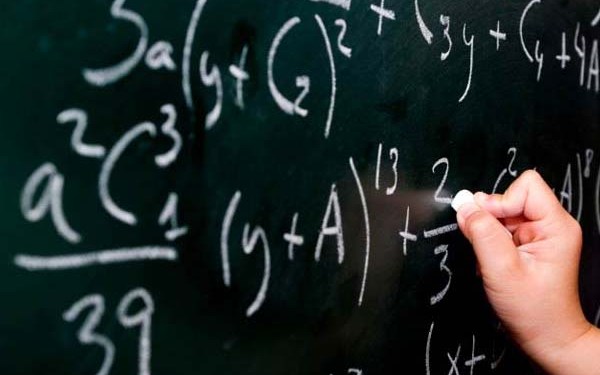 5a(y+(2)² + (3y+(y+4A
a²C³₁/39 (y+A)¹³ + 2/3 c² A)⁸
(x+